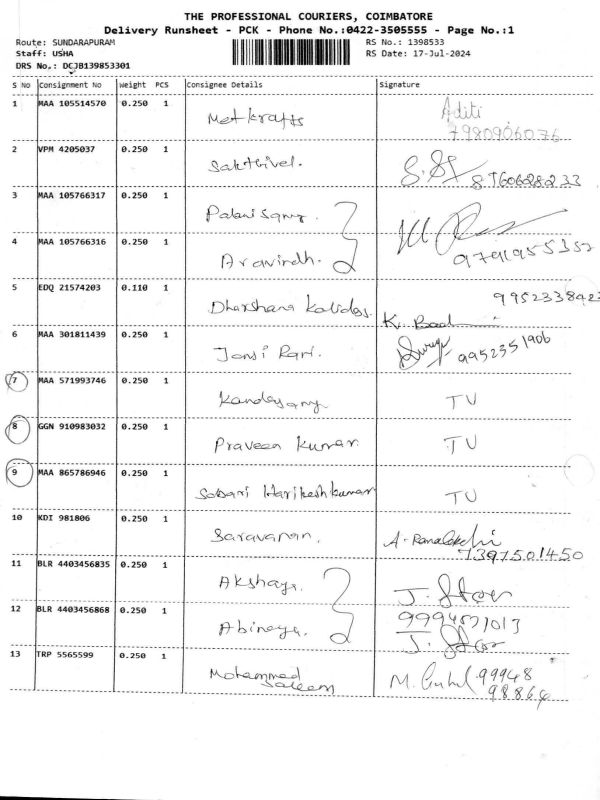 THE PROFESSIONAL COURIERS, COIMBATORE
Delivery Runsheet - PCK - Phone No.:0422-3505555 - Page No.:1
Route: SUNDARAPURAM RS No.: 1398533
Staff: USHA RS Date: 17-Jul-2024
DRS No.: DCJB139853301
S No Consignment No Weight PCS Consignee Details Signature
1 MAA 105514570 0.250 1 Metkrafts Aditi
7980906076
2 VPM 4205037 0.250 1 Sakthivel.
3 MAA 105766317 0.250 1 Palanisamy.
4 MAA 105766316 0.250 1 Aravindh.
5 EDQ 21574203 0.110 1 Dharshana Kalidas. 9952338423
6 MAA 301811439 0.250 1 Jansi Rani. 9952351906
7 MAA 571993746 0.250 1 Kandasamy TU
8 GGN 910983032 0.250 1 Praveen Kumar TU
9 MAA 865786946 0.250 1 Sabari Harikeshkumar TU
10 KDI 981806 0.250 1 Saravanan.
7397501450
11 BLR 4403456835 0.250 1 Akshaya.
12 BLR 4403456868 0.250 1 Abinaya.
13 TRP 5565599 0.250 1 Mohammed
Saleem
99948
98864